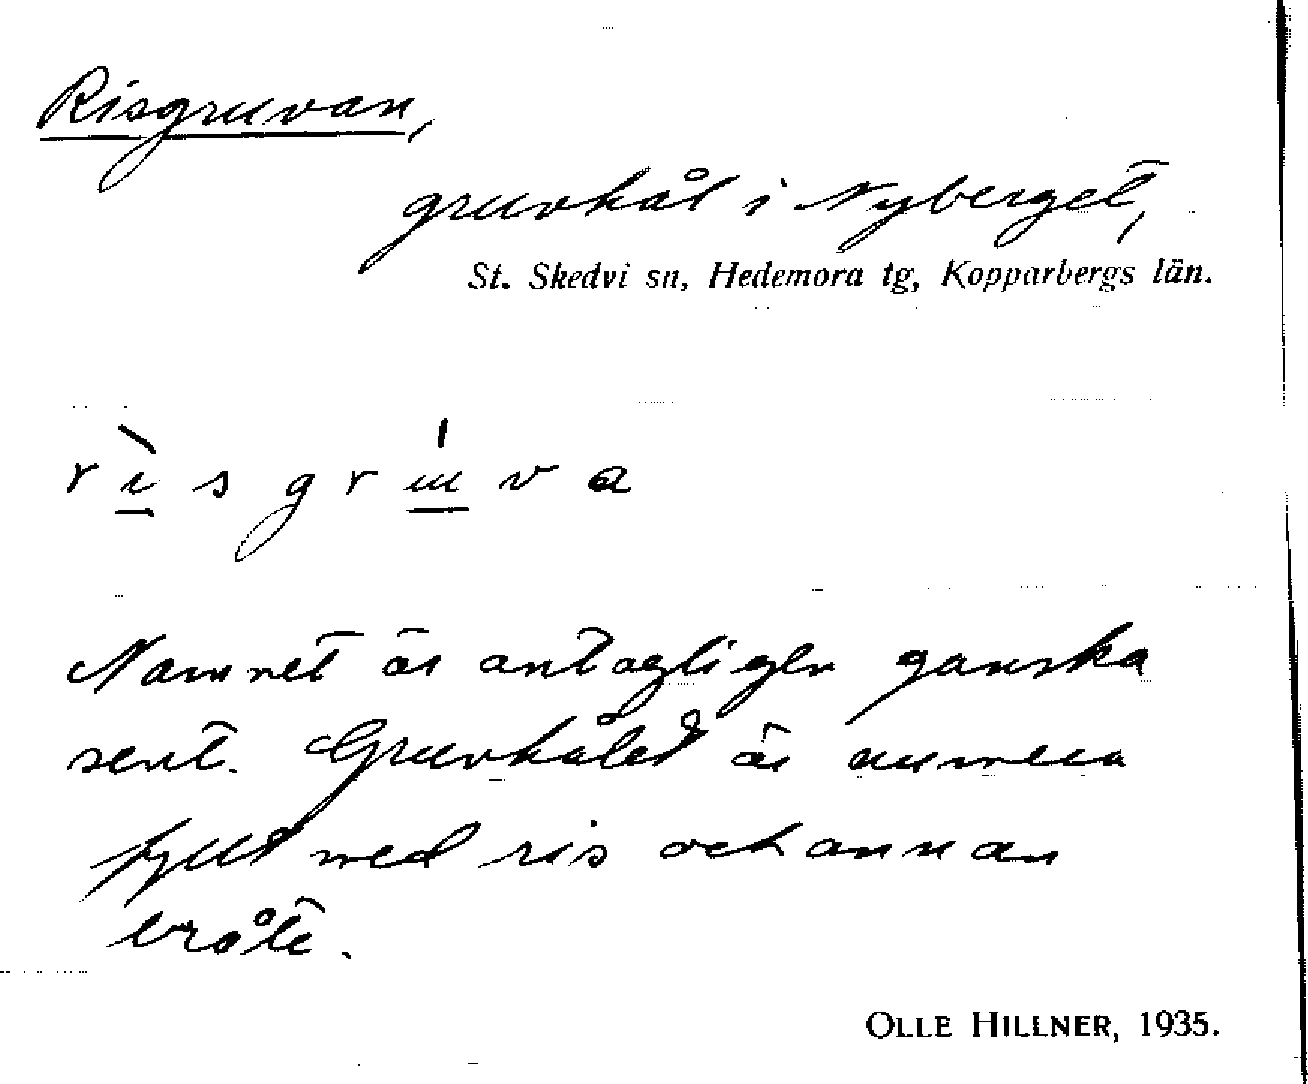 Risgruvan,
gruvhål i Nyberget,
St. Skedvi sn, Hedemora tg, Kopparbergs län.
rìsgrúva
Namnet är antagligen ganska
sent. Gruvhålet är numera
fyllt med ris och annan
bråte.
OLLE HILLNER, 1935.